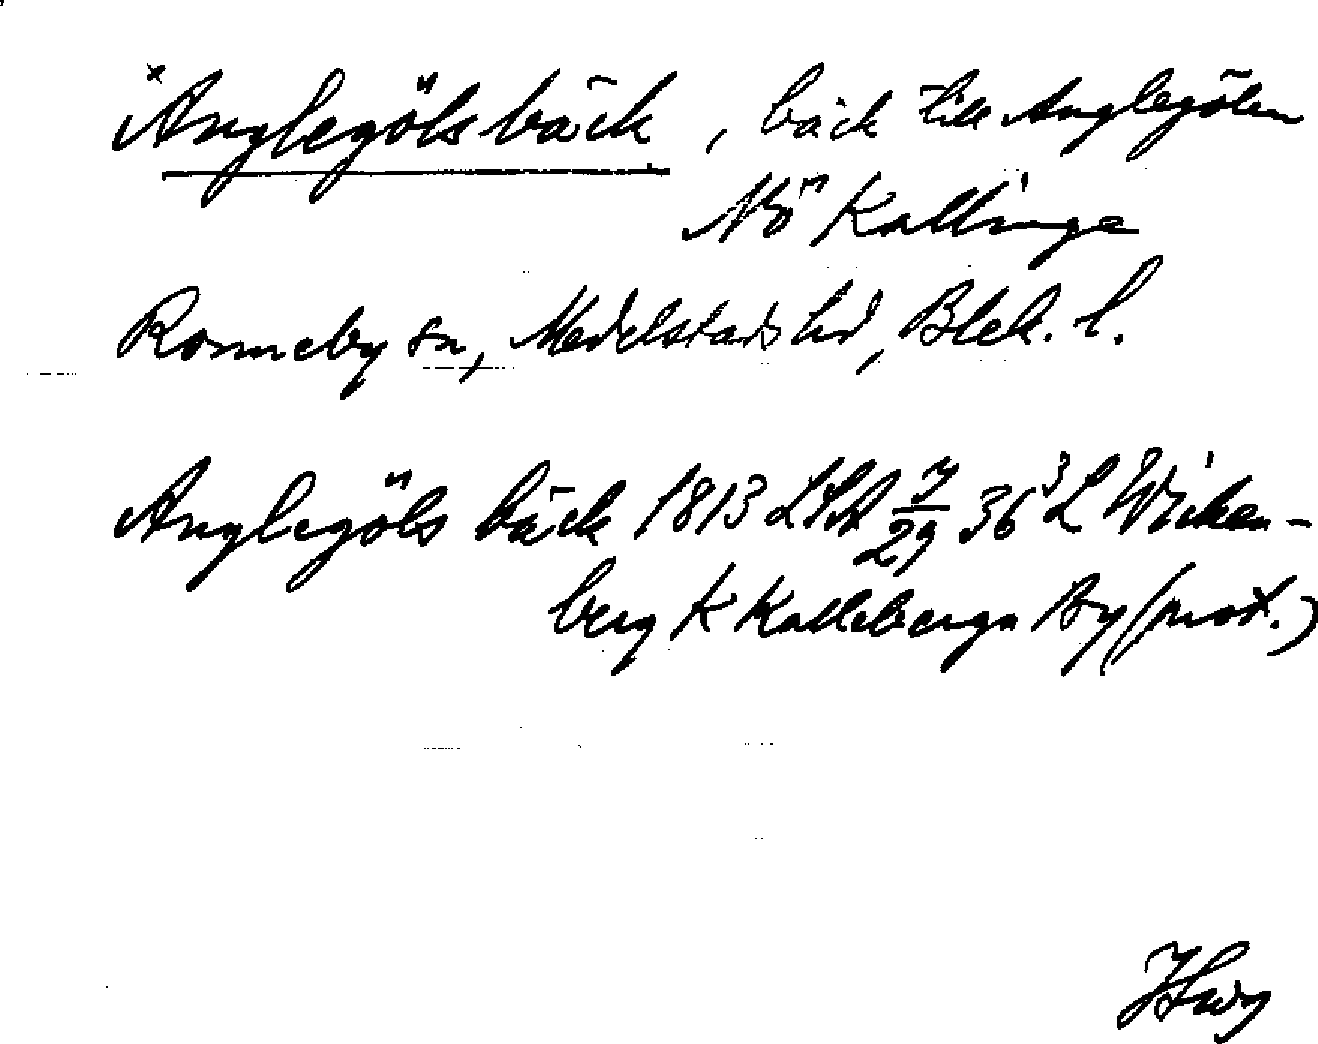 ×Anglegölsbäck, bäck till Anglegölen
NÖ Kallinge
Ronneby sn, Medelstads hd, Blek. l.
Anglegöls bäck 1813 LSA 7/29 36³ L Wicken-
berg K Kalleberga By (prot.)